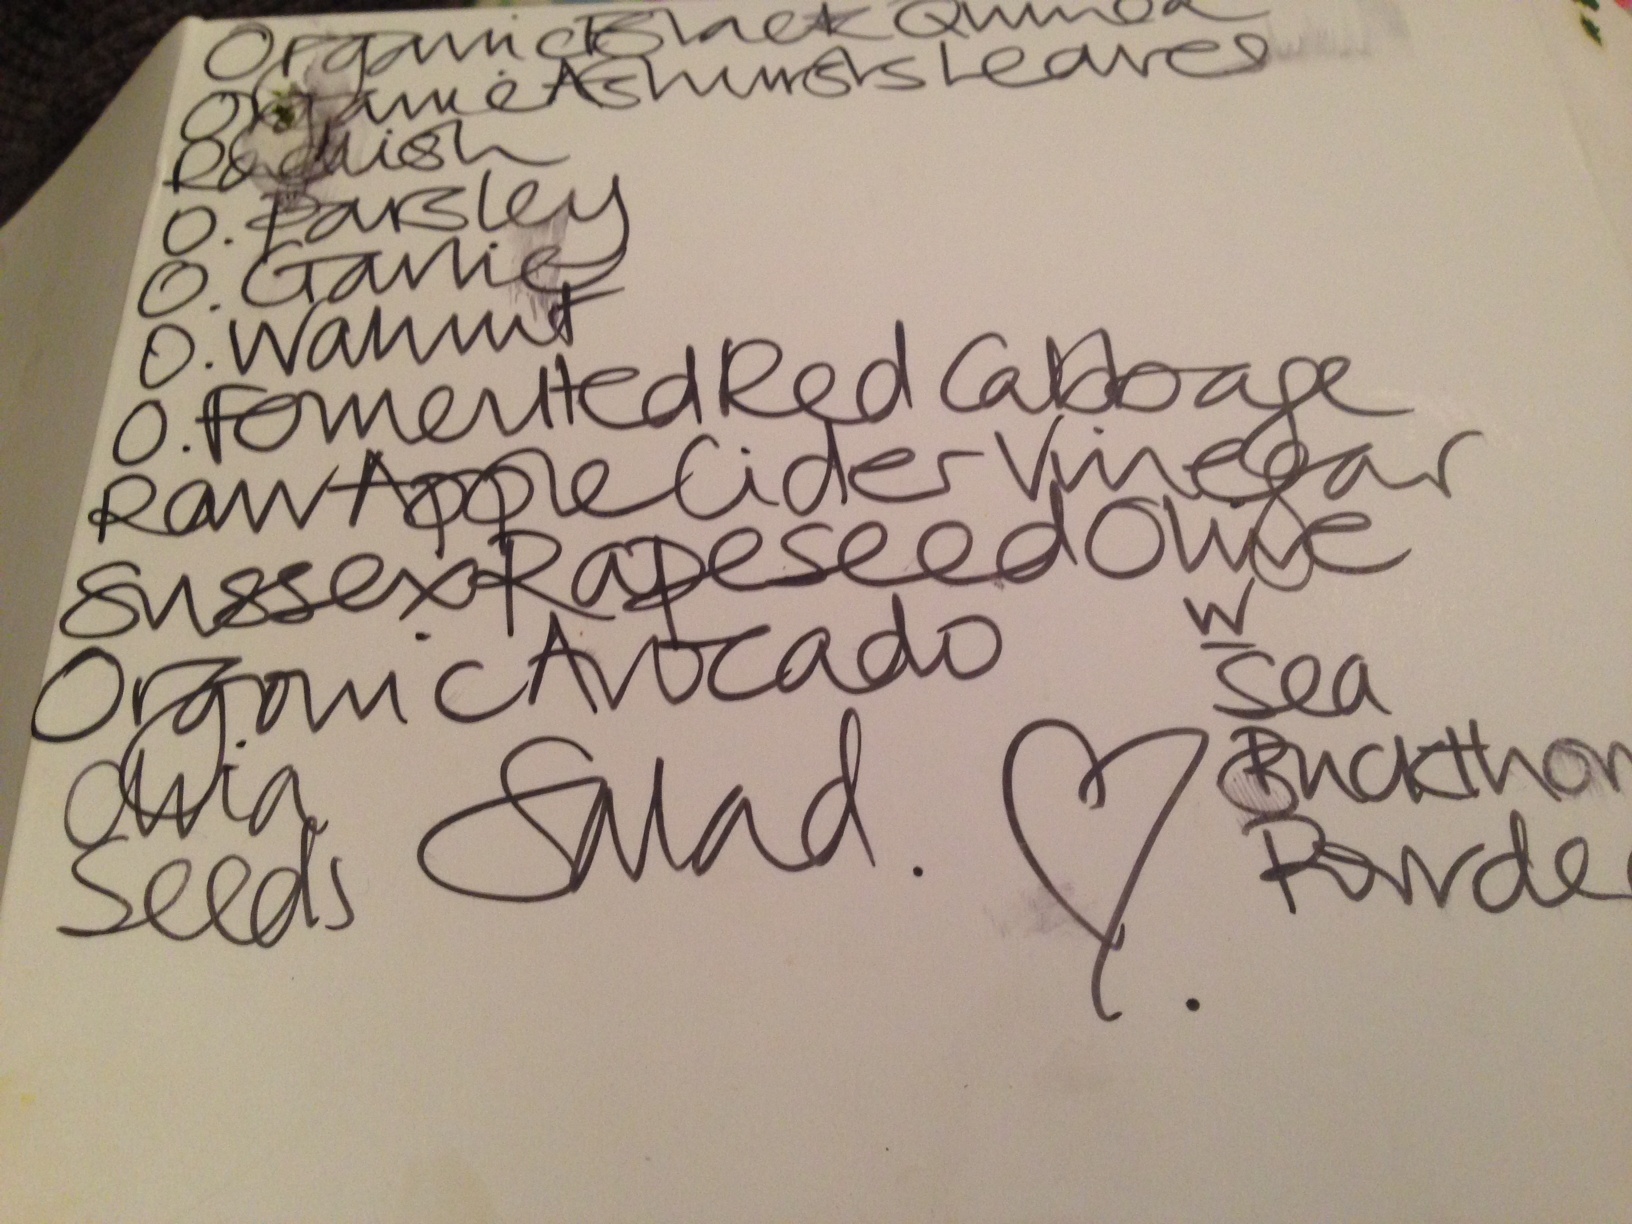 Organic Black Quinoa
Organic Ashursts Leaves
Radish
O. Parsley
O. Garlic
O. Walnut
O. Fomented Red Cabbage
Raw Apple Cider Vinegar
Sussex Rapeseed Olive
Organic Avocado
Chia
Seeds
Salad.
w
Sea
Buckthor
Powde